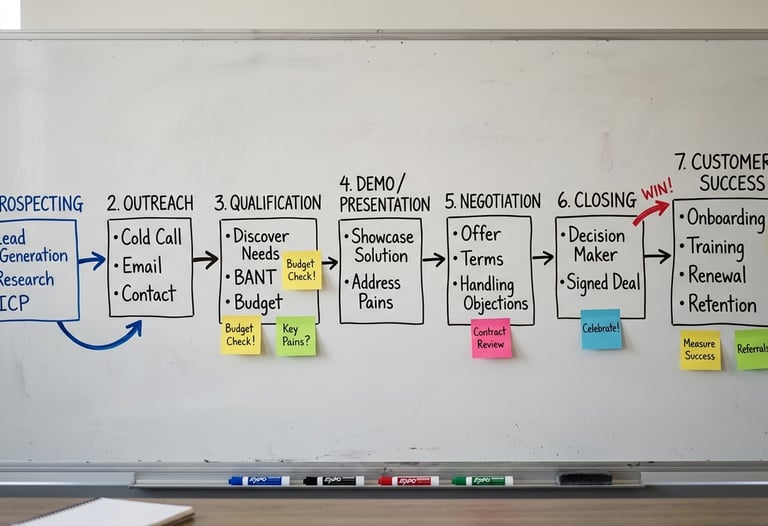 ROSPECTING
Lead
Generation
Research
ICP
2. OUTREACH
• Cold Call
• Email
• Contact
3. QUALIFICATION
• Discover
Needs
• BANT
• Budget
Budget
Check!
Budget
Check!
Key
Pains?
4. DEMO/
PRESENTATION
• Showcase
Solution
• Address
Pains
5. NEGOTIATION
• Offer
• Terms
• Handling
Objections
Contract
Review
6. CLOSING
• Decision
Maker
• Signed Deal
Celebrate!
WIN!
7. CUSTOMER
SUCCESS
• Onboarding
• Training
• Renewal
• Retention
Measure
Success
Referrals
EXPO
EXPO
EXPO
EXPO